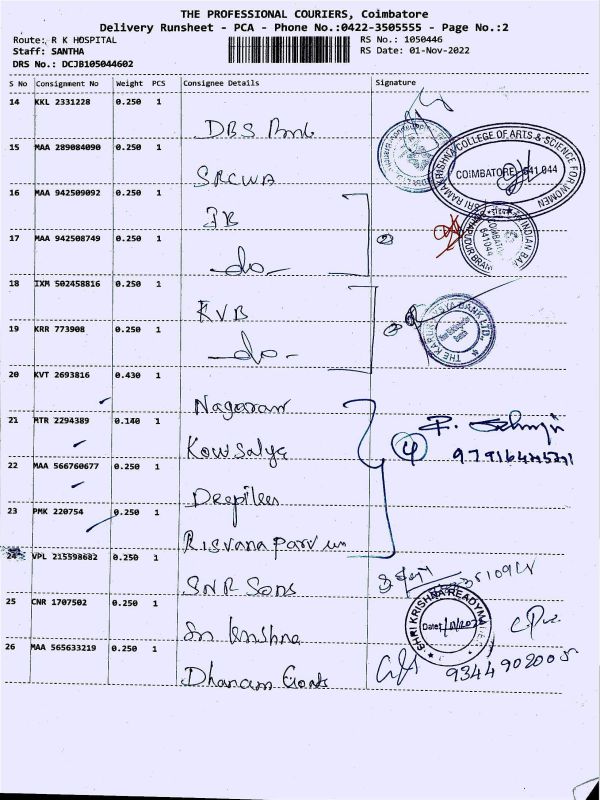 THE PROFESSIONAL COURIERS, Coimbatore
Delivery Runsheet - PCA - Phone No.:0422-3505555 - Page No.:2
Route: R K HOSPITAL RS No.: 1050446
Staff: SANTHA RS Date: 01-Nov-2022
DRS No.: DCJB105044602
S No Consignment No Weight PCS Consignee Details Signature
14 KKL 2331228 0.250 1
DBS Bank
15 MAA 289084090 0.250 1
SRCWA
SRI RAMAKRISHNA COLLEGE OF ARTS & SCIENCE FOR WOMEN
COIMBATORE 641 044
16 MAA 942509092 0.250 1
IB
17 MAA 942508749 0.250 1
-do-
②
INDIAN BA
COIMBATO
641044
BRAN
18 IXM 502458816 0.250 1
KVB
19 KRR 773908 0.250 1
-do-
THE KARUR VYSYA BANK LTD.
20 KVT 2693816 0.430 1
Nagaran
21 MTR 2294389 0.140 1
Kowsalya
④
22 MAA 566760677 0.250 1
Deepikea
23 PMK 220754 0.250 1
Risvana Parveen
24 VPL 215598682 0.250 1
SNR Sons
25 CNR 1707502 0.250 1
Sri Krishna
SHRI KRISHNA READYM
Date:
26 MAA 565633219 0.250 1
Dhanam
9344902005